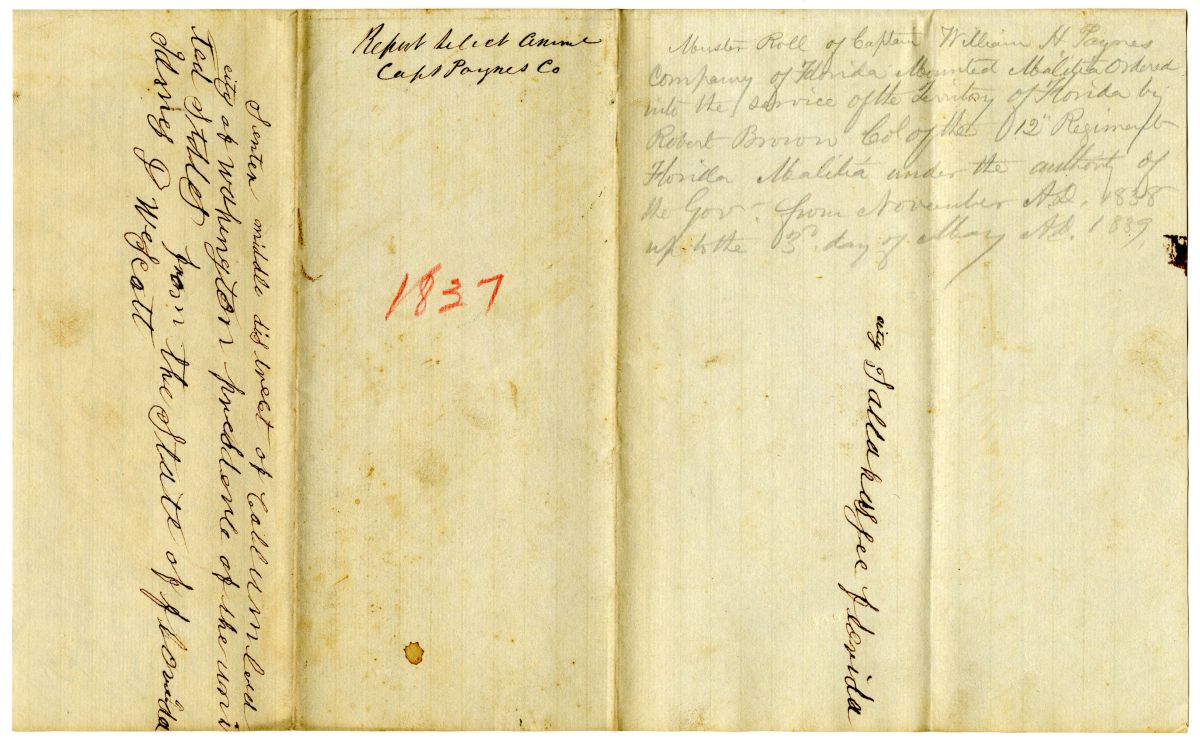 Report Select Comme
Capt Paynes Co
1837
Muster Roll of Captain William H Paynes
Company of Florida Mounted Malitia Ordered
into the service of the Territory of Florida by
Robert Brown Col of the 12" Regiment
Florida Malitia under the authority of
the Gov. from November A.D. 1838
up to the 3d day of May A.D. 1839
city Tallahassee florida
middle district of Callumbud
city of Wohington presdene of the uni
ted States from the State of florida
James D Westcott